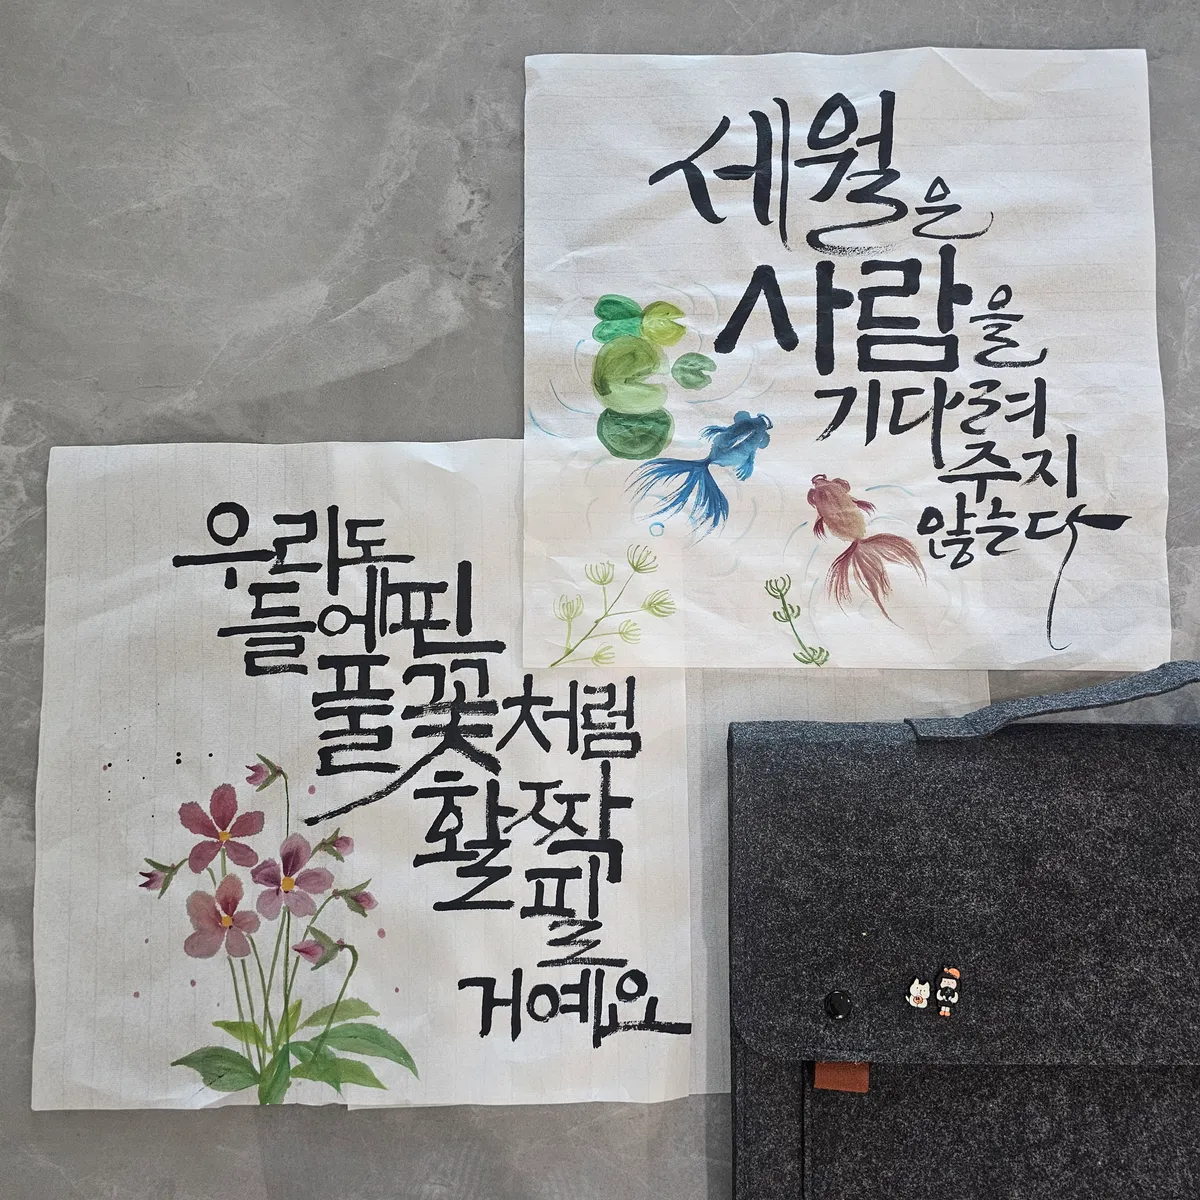 세월은
사람을
기다려
주지
않는다
우리도
들에핀
풀꽃처럼
활짝
필
거예요